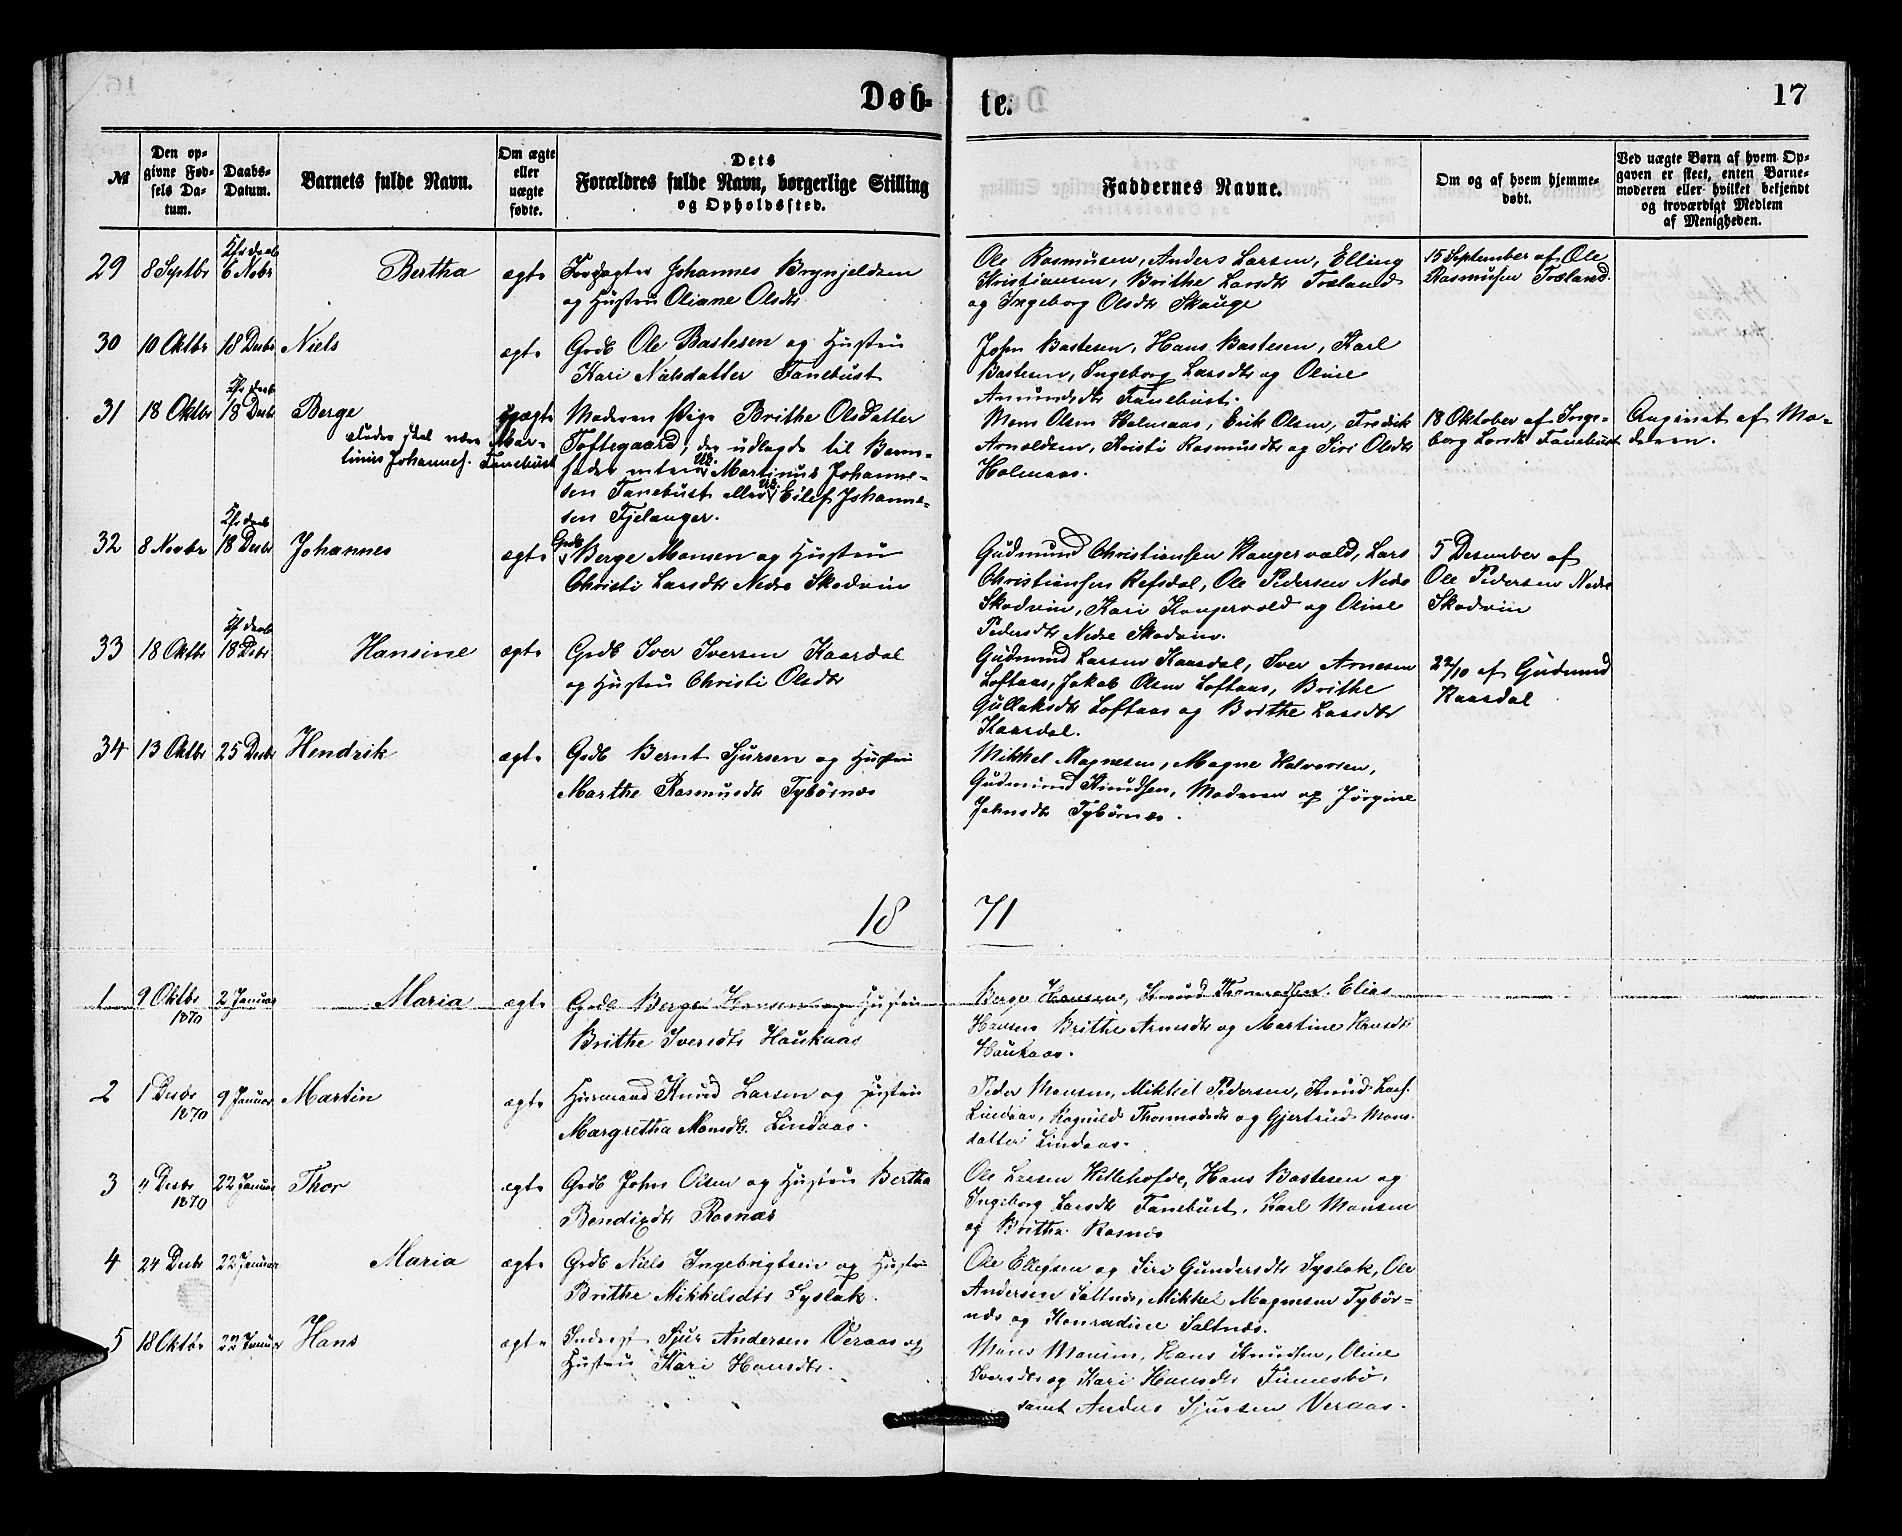 Døb-
te.
17
№
Den op-
givne Fød-
sels Da-
tum.
Daabs-
Datum.
Barnets fulde Navn.
Om ægte
eller
uægte
fødte.
Dets
Forældres fulde Navn, borgerlige Stilling
og Opholdssted.
Faddernes Navne.
Om og af hvem hjemme-
døbt.
Ved uægte Børn af hvem Op-
gaven er skeet, enten Barne-
moderen eller hvilket bekjendt
og troværdigt Medlem
af Menigheden.
29 8 Septbr 6 Nobr Bertha ægte Johannes Brynjeldsen
og Hustru Oliane Olsdtr
Ole Rasmusen, Anders Larsen, Elling
Kristiansen, Brithe Larsdtr Træland
og Ingeborg Olsdtr Skauge
15 September af Ole
Rasmusen Træland.
30 10 Oktbr 18 Desbr Niels ægte Grdb Ole Bastesen og Hustru
Kari Nielsdatter Tanebust
John Bastesen, Hans Bastesen, Karl
Bastesen, Ingeborg Larsdtr og Oline
Amundsdtr Tanebust.
31 18 Oktbr 18 Desbr Berge uægte Moderen Pige Brithe Olsdatter
Toftegaard, den udlagde til Barne-
fader enten Martinus Johanne-
sen Tanebust eller Eilef Johanne-
sen Fjelanger.
skal være Mar-
tinus Johannes. Tanebust
Mons Olsen Holmaas, Erik Olsen, Fredrik
Arnoldsen, Kristi Rasmusdtr og Siri Olsdtr
Holmaas.
18 Oktober af Inge-
borg Larsdtr Tanebust
Angivet af Mo-
deren.
32 8 Novbr 18 Desbr Johannes ægte Grdb Berge Monsen og Hustru
Christi Larsdtr Nedre Skodvin
Gudmund Christiansen Haugervold, Lars
Christiansen Refsdal, Ole Pedersen Nedre
Skodvin, Kari Haugervold og Oline
Pedersdtr Nedre Skodvin.
5 Desember af
Ole Pedersen Nedre
Skodvin
33 18 Oktbr 18 Desbr Hansine ægte Grdb Iver Iversen Kaardal
og Hustru Christi Olsdtr
Gudmund Larsen Kaasdal, Iver Arnesen
Loftaas, Jakob Olsen Loftaas, Brithe
Gullaksdtr Loftaas og Brithe Larsdtr
Kaardal.
22/10 af Gudmund
Kaardal
34 13 Oktbr 25 Desbr Hendrik ægte Grdb Bernt Sjursen og Hustru
Marthe Rasmusdtr Tybørnæs
Mikkel Magnesen, Magne Halvorsen,
Gudmund Knudsen, Moderen og Jørgine
Johnsdtr Tybørnæs.
18 71
1 9 Oktbr 1870 2 Januar Maria ægte Grdb Berge Hansen og Hustru
Brithe Iversdtr Haukaas
Berge Hansen, Knud Konradsen, Elias
Hansen Brithe Arnesdtr og Martine Hansdtr
Haukaas.
2 1 Desbr 1870 9 Januar Martin ægte Husmand Knud Larsen og Hustru
Margretha Monsdtr. Lindaas.
Peder Monsen, Mikkel Pedersen, Knud Lars.
Lindaas, Ragnild Thormodsdtr og Gjertrud Mons-
datter Lindaas.
3 11 Desbr 1870 22 Januar Thor ægte Grdb John Olsen og Hustru Bertha
Bendixdtr Rosnæs
Ole Larsen Hellehofde, Hans Bastesen og
Ingeborg Larsdtr Tanebust, Karl Monsen
og Brithe Rosnæs
4 24 Desbr 22 Januar Maria ægte Grdb Niels Ingebrigtsen og Hustru
Brithe Mikkelsdtr Syslak.
Ole Ellefsen og Siri Gundersdtr Syslak, Ole
Andersen Saltnæs, Mikkel Magnesen Tybør-
næs og Konradine Saltnæs.
5 18 Oktbr 22 Januar Hans ægte Inderst Sjur Andersen Veraas og
Hustru Kari Hansdtr.
Mons Monsen, Hans Knudsen, Oline
Iversdtr og Kari Hansdtr Finnesbø,
samt Anders Sjursen Veraas.